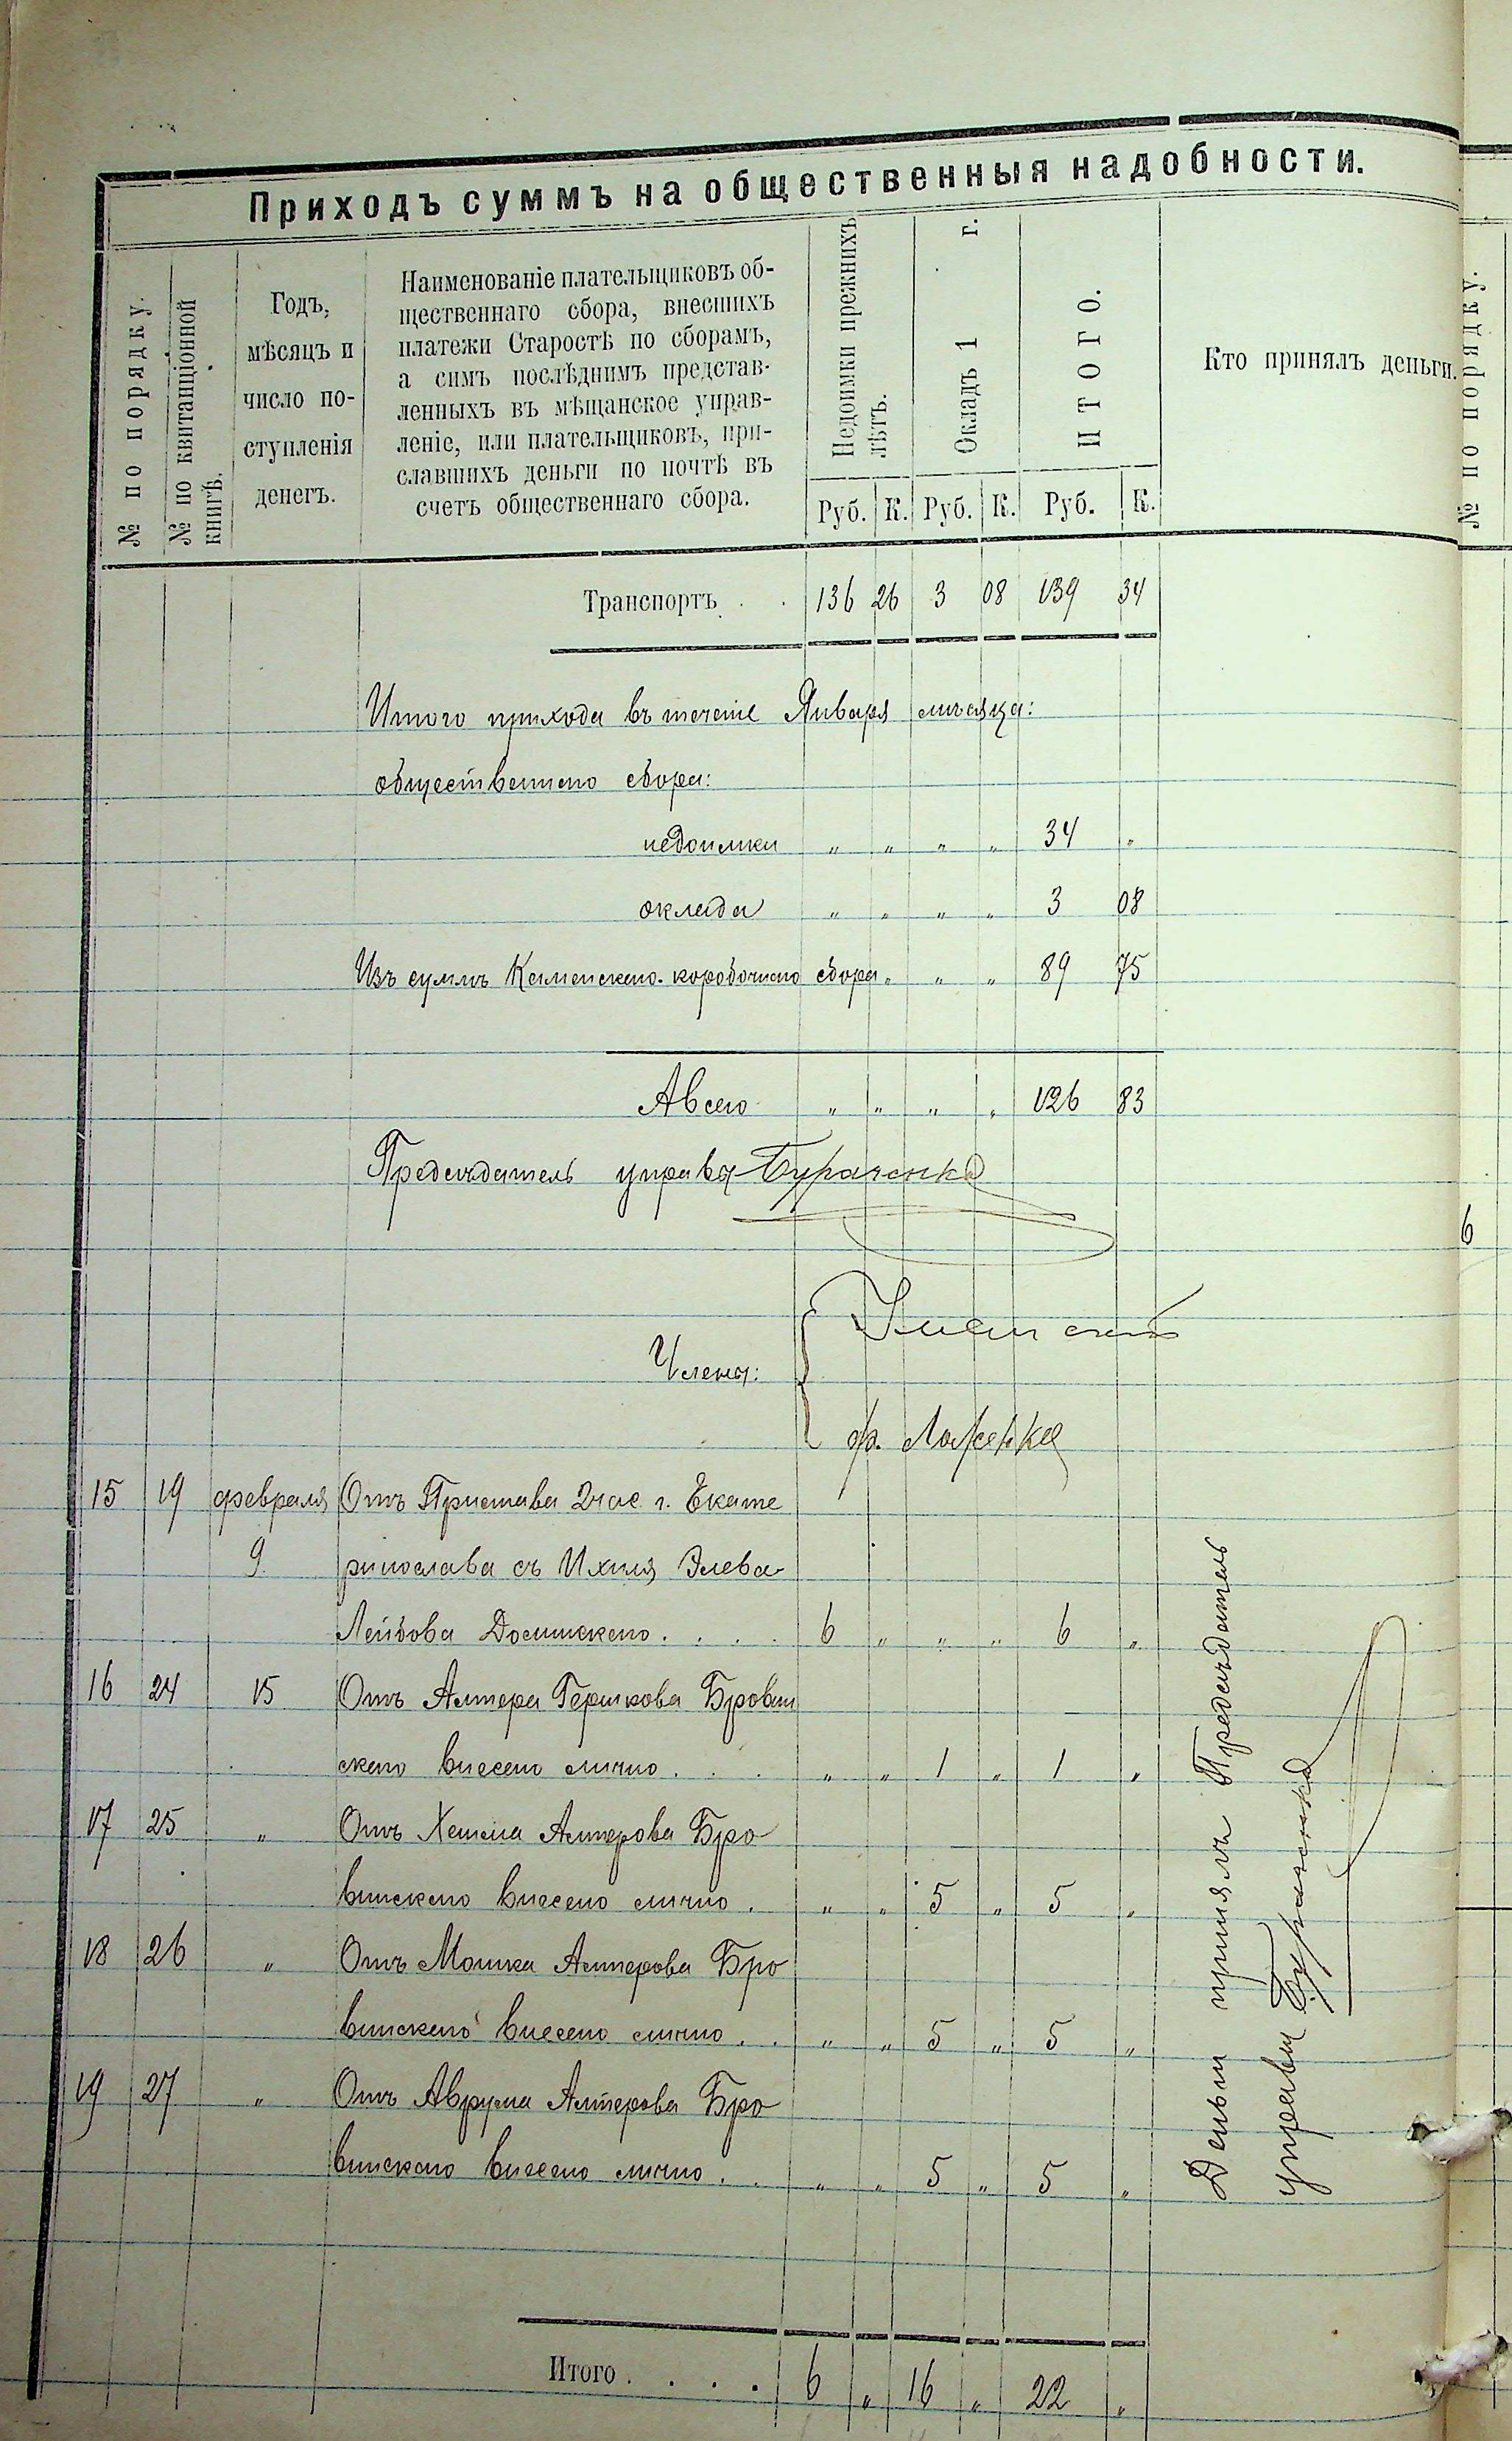 Приходъ суммъ на общественныя надобности.
№ по порядку.
№ по квитанціонной
книгѣ.
Годъ,
мѣсяцъ и
число по-
ступленія
денегъ.
Наименованіе плательщиковъ об-
щественнаго сбора, внесшихъ
платежи Старостѣ по сборамъ,
а симъ послѣднимъ представ-
ленныхъ въ мѣщанское управ-
леніе, или плательщиковъ, при-
славшихъ деньги по почтѣ въ
счетъ общественнаго сбора.
Недоимки прежнихъ
лѣтъ.
Окладъ 1 г.
ИТОГО.
Кто принялъ деньги.
Руб. К. Руб. К. Руб. К.
Транспортъ . . 136 26 3 08 139 34
Итого прихода въ теченіе Января мѣсяца:
общественнаго сбора:
недоимки " " " " 34 "
оклада " " " " 3 08
Изъ суммъ Каменскаго коробочнаго сбора " " " 89 75
А всего " " " " 126 83
Предсѣдатель управы
Члены:
15 19 февраля Отъ Пристава 2 час. г. Екате
9 ринослава съ Ихиля Элева-
Лейбова . . . . 6 " " " 6 "
16 24 15 Отъ Алтера Гершкова Бровин
скаго внесено лично . . . " " 1 " 1 "
17 25 " Отъ Алтерова Бро
винскаго внесено лично . " " 5 " 5 "
18 26 " Отъ Мошка Алтерова Бро
винскаго внесено лично . . " " 5 " 5 "
19 27 " Отъ Аврума Алтерова Бро
винскаго внесено лично . . " " 5 " 5 "
Итого . . . . 6 " 16 " 22 "
Деньги принялъ Предсѣдатель
управы
№ по порядку.
6